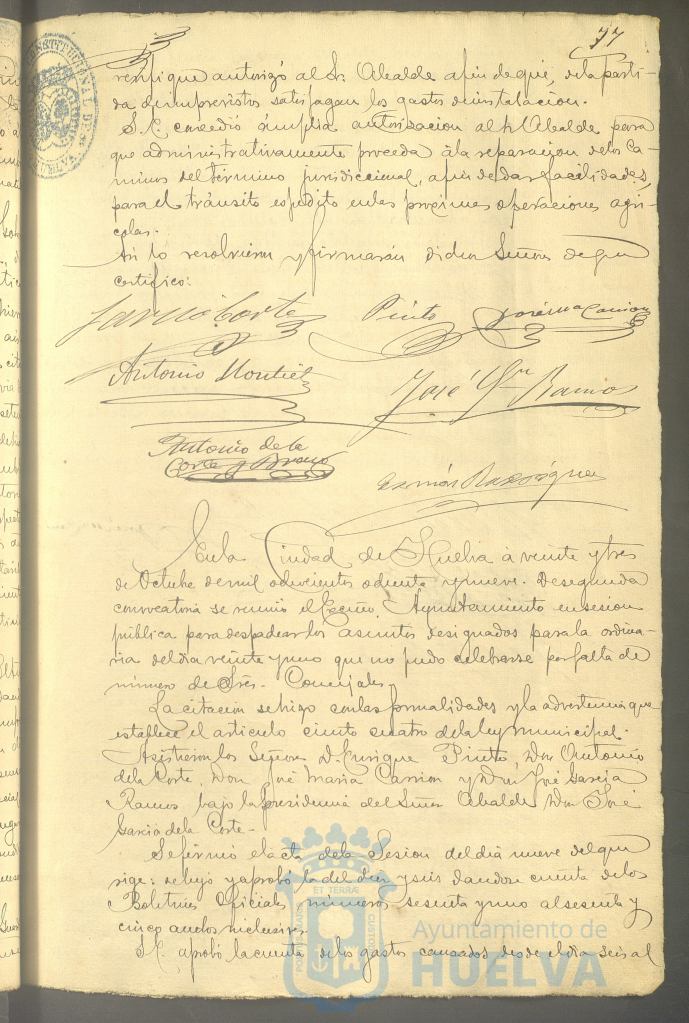 77
verifique autorizó al Sr. Alcalde afin de que, de la parti-
da de imprevistos satisfagan los gastos de instalacion.
S.E. concedió ámplia autorizacion al Sr. Alcalde para
que administrativamente proceda à la reparacion de los Ca-
minos del término jurisdiccional, afin de dar facilidades,
para el tránsito espedito en las proximas operaciones agri-
colas.
Asi lo resolvieron y firmarán dichos Señores de que
certifico:
Garcia Corte Pinto José Ma Carrion
Antonio Montiel José Ga Ramos
Antonio de la
Corte y Bravo
Ramón Rodríguez
En la Ciudad de Huelva à veinte y tres
de Octubre de mil ochocientos ochenta y nueve. De segunda
convocatoria se reunió el Excmo. Ayuntamiento en sesion
pública para despachar los asuntos designados para la ordina-
ria del dia veinte y uno que no pudo celebrarse por falta de
número de Sres. Concejales.
La citacion se hizo con las formalidades y la advertencia que
establece el articulo ciento cuatro de la ley municipal.
Asistieron los Señores D. Enrique Pinto, Don Antonio
de la Corte, Don José Maria Carrion y Don José Garcia
Ramos bajo la Presidencia del Señor Alcalde Don José
Garcia de la Corte.
Se firmó el acta de la Sesion del dia nueve del que
rige: se leyó y aprobó la del diez y seis dandose cuenta de los
Boletines Oficiales números sesenta y uno al sesenta y
cinco ambos inclusives.
S.E. aprobó la cuenta de los gastos causados desde el dia seis al
PORTUS MARIS ET TERRAE CUSTODIA
Ayuntamiento de
HUELVA